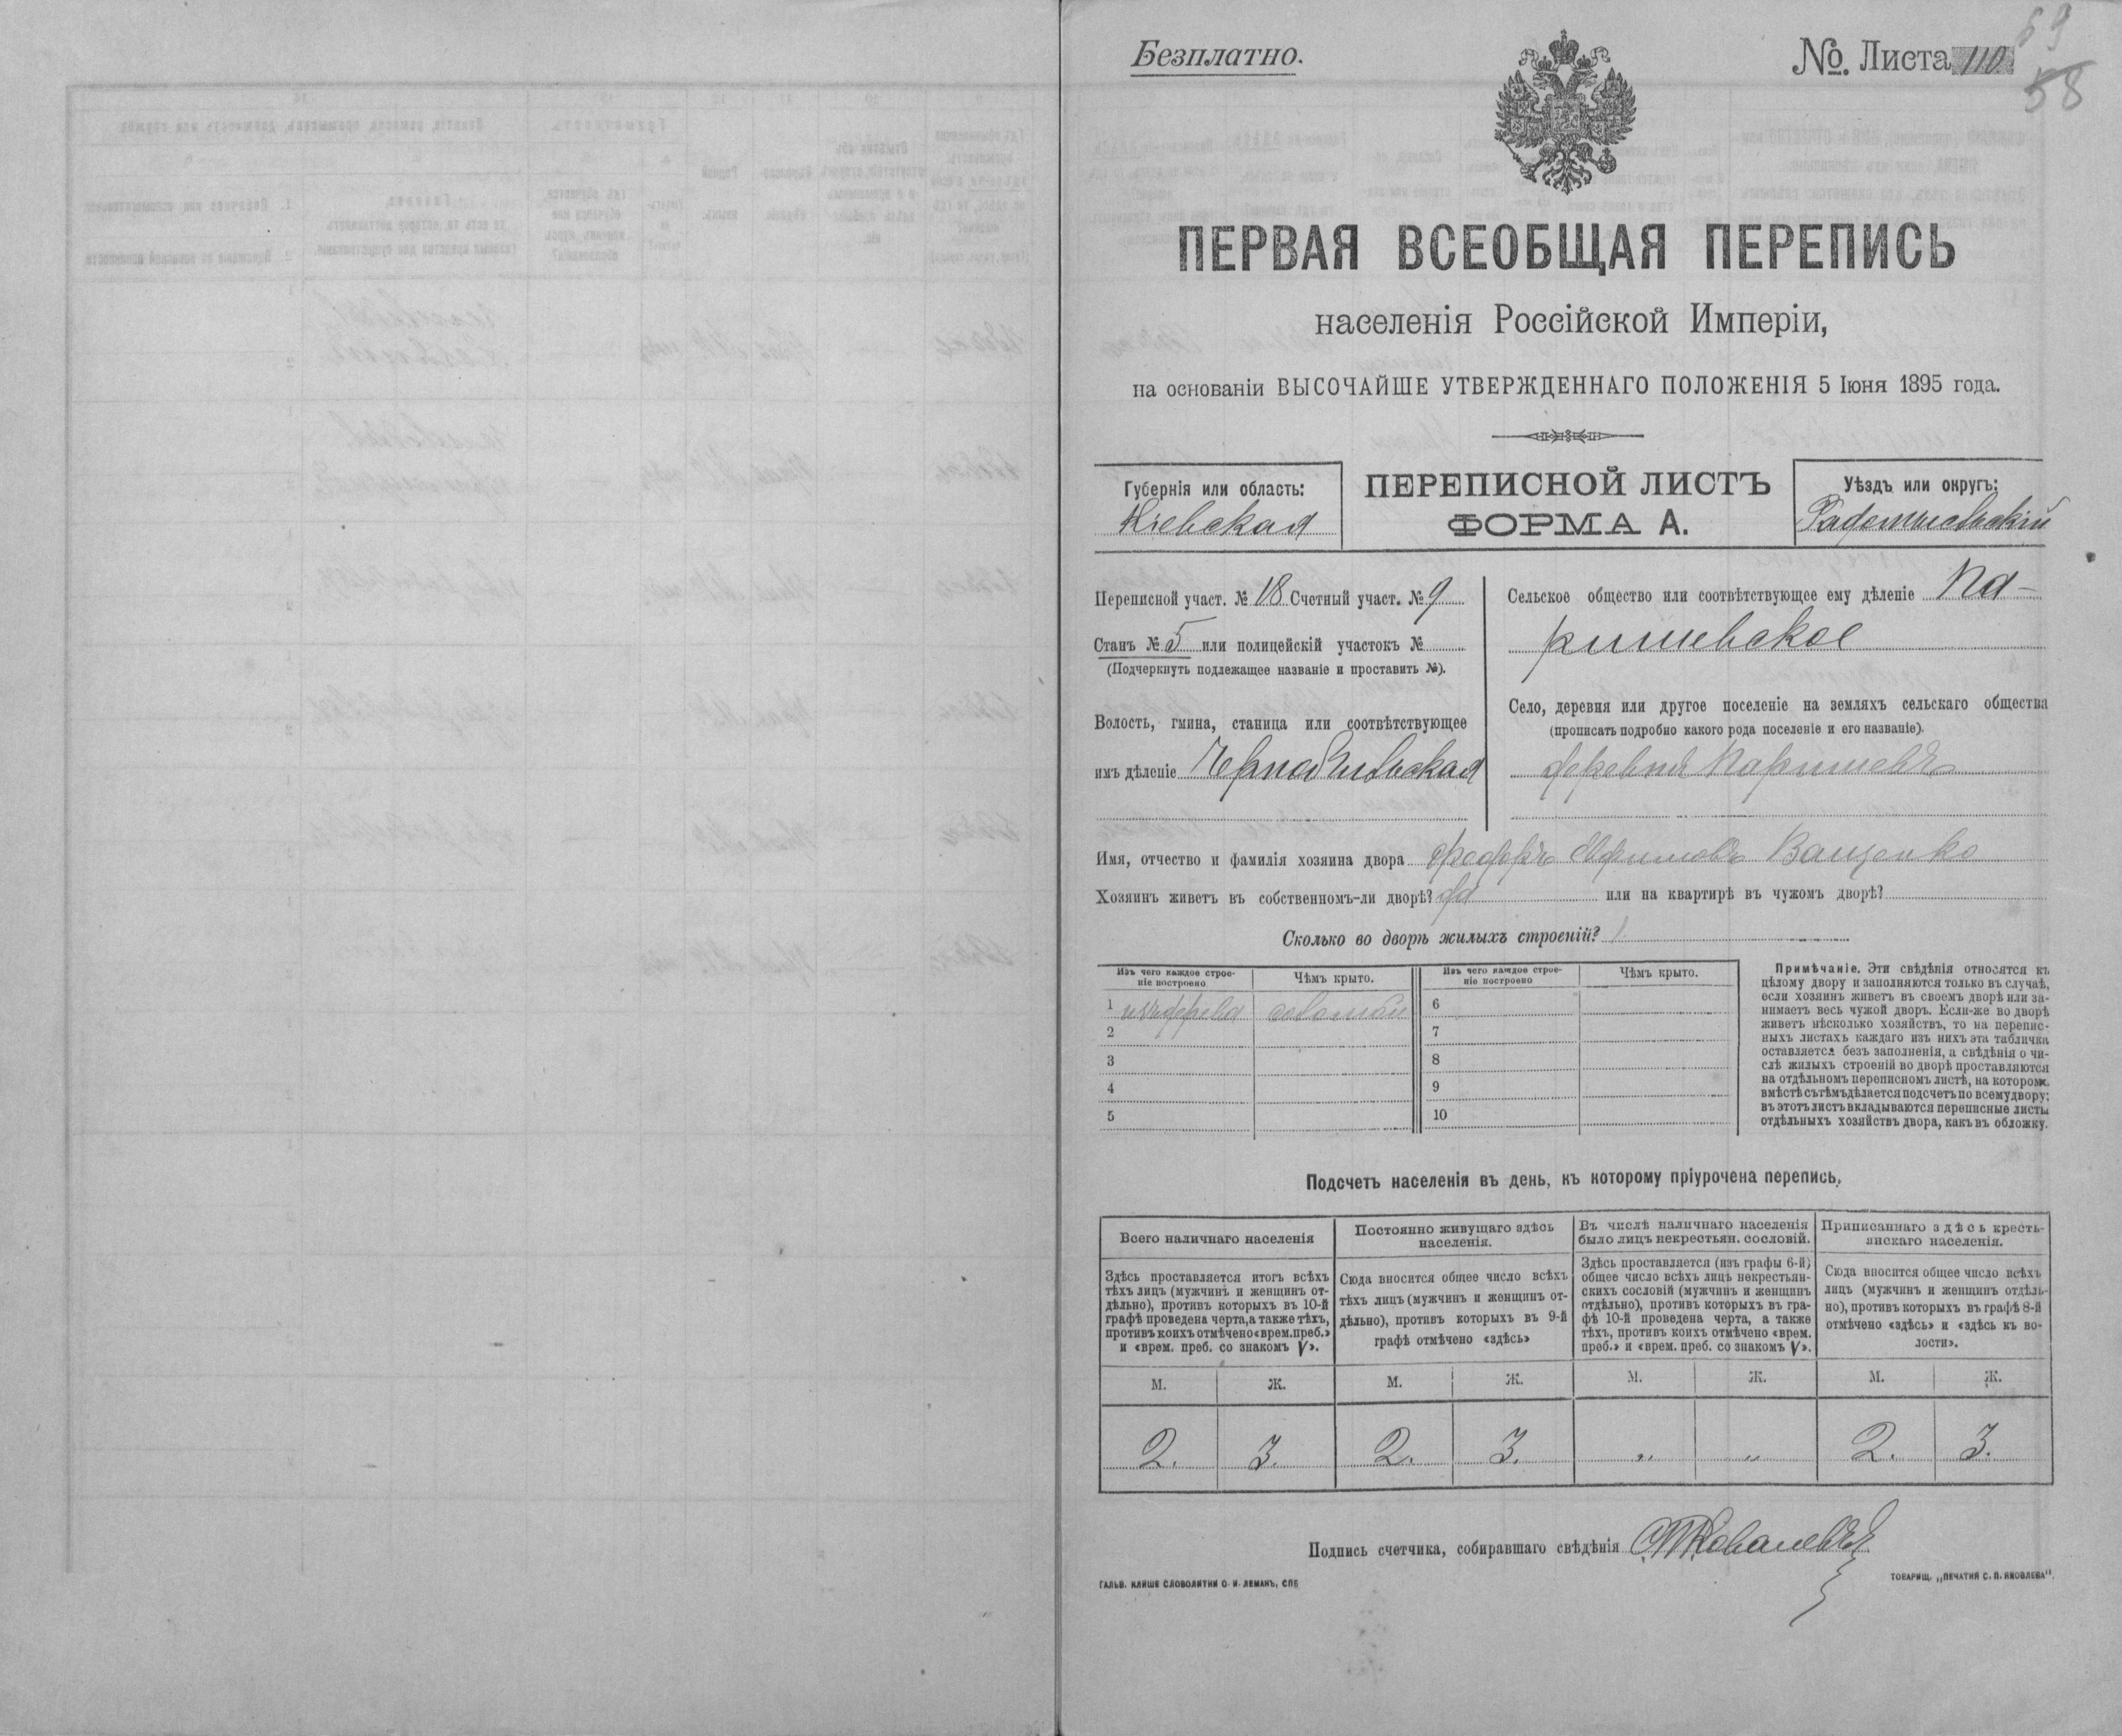 Безплатно.
№. Листа 110
69
58
ПЕРВАЯ ВСЕОБЩАЯ ПЕРЕПИСЬ
населенія Россійской Имперіи,
на основаніи ВЫСОЧАЙШЕ УТВЕРЖДЕННАГО ПОЛОЖЕНІЯ 5 Іюня 1895 года.
Губернія или область:
Кіевская
ПЕРЕПИСНОЙ ЛИСТЪ
ФОРМА А.
Уѣздъ или округъ:
Радомысльскій
Переписной участ. № 18 Счетный участ. № 9
Станъ № 5 или полицейскій участокъ №
(Подчеркнуть подлежащее названіе и проставить №).
Волость, гмина, станица или соотвѣтствующее
имъ дѣленіе Чернобыльская
Сельское общество или соотвѣтствующее ему дѣленіе Па-
ришевское
Село, деревня или другое поселеніе на земляхъ сельскаго общества
(прописать подробно какого рода поселеніе и его названіе).
деревня Паришевъ
Имя, отчество и фамилія хозяина двора Федоръ Ефимовъ Ващенко
Хозяинъ живетъ въ собственномъ-ли дворѣ? да или на квартирѣ въ чужомъ дворѣ?
Сколько во дворѣ жилыхъ строеній? 1
Изъ чего каждое строе-
ніе построено
Чѣмъ крыто.
Изъ чего каждое строе-
ніе построено
Чѣмъ крыто.
1 изъ дерева соломой
2
3
4
5
6
7
8
9
10
Примѣчаніе. Эти свѣдѣнія относятся къ
цѣлому двору и заполняются только въ случаѣ,
если хозяинъ живетъ въ своемъ дворѣ или за-
нимаетъ весь чужой дворъ. Если-же во дворѣ
живетъ нѣсколько хозяйствъ, то на перепис-
ныхъ листахъ каждаго изъ нихъ эта табличка
оставляется безъ заполненія, а свѣдѣнія о чи-
слѣ жилыхъ строеній во дворѣ проставляются
на отдѣльномъ переписномъ листѣ, на которомъ
вмѣстѣ съ тѣмъ дѣлается подсчетъ по всему двору;
въ этотъ листъ вкладываются переписные листы
отдѣльныхъ хозяйствъ двора, какъ въ обложку.
Подсчетъ населенія въ день, къ которому пріурочена перепись.
Всего наличнаго населенія
Здѣсь проставляется итогъ всѣхъ
тѣхъ лицъ (мужчинъ и женщинъ от-
дѣльно), противъ которыхъ въ 10-й
графѣ проведена черта, а также тѣхъ,
противъ коихъ отмѣчено «врем. преб.»
и «врем. преб. со знакомъ V».
Постоянно живущаго здѣсь
населенія.
Сюда вносится общее число всѣхъ
тѣхъ лицъ (мужчинъ и женщинъ от-
дѣльно), противъ которыхъ въ 9-й
графѣ отмѣчено «здѣсь»
Въ числѣ наличнаго населенія
было лицъ некрестьян. сословій.
Здѣсь проставляется (изъ графы 6-й)
общее число всѣхъ лицъ некрестьян-
скихъ сословій (мужчинъ и женщинъ
отдѣльно), противъ которыхъ въ гра-
фѣ 10-й проведена черта, а также
тѣхъ, противъ коихъ отмѣчено «врем.
преб.» и «врем. преб. со знакомъ V».
Приписаннаго здѣсь кресть-
янскаго населенія.
Сюда вносится общее число всѣхъ
лицъ (мужчинъ и женщинъ отдѣль-
но), противъ которыхъ въ графѣ 8-й
отмѣчено «здѣсь» и «здѣсь къ во-
лости».
М. Ж. М. Ж. М. Ж. М. Ж.
2. 3. 2. 3. „ „ 2. 3.
Подпись счетчика, собиравшаго свѣдѣнія
ГАЛЬВ. КЛИШЕ СЛОВОЛИТНИ О. И. ЛЕМАНЪ, СПБ
ТОВАРИЩ. „ПЕЧАТНЯ С. П. ЯКОВЛЕВА".